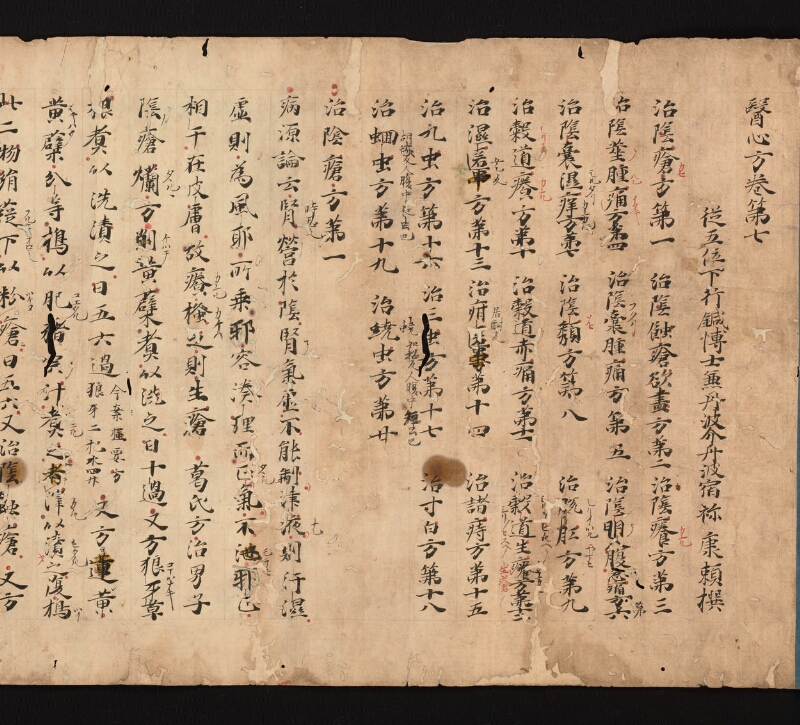 醫心方卷第七
従五位下行鍼博士兼丹波介丹波宿祢康頼撰
治陰瘡方第一 治陰蝕瘡欲盡方第二 治陰癢方第三
治陰莖腫痛方第四 治陰囊腫痛方第五 治陰卵腹急痛方第六
治陰囊湿痒方第七 治陰頽方第八 治脱肛方第九
治穀道癢方第十 治穀道赤痛方第十一 治穀道生瘡方第十二
治湿䘌方第十三 治疳䘌方第十四 治諸痔方第十五
治九虫方第十六 治三虫方第十七 治寸白方第十八
治蛔虫方第十九 治蟯虫方第廿
治陰瘡方第一
病源論云腎營於陰腎氣虚不能制津液則汗湿
虚則為風耶所乗邪客湊理而正氣不泄邪正
相干在皮膚故癢搔之則生瘡 葛氏方治男子
陰瘡爛方剉黄蘗煮以洗之日十過 又方狼牙草
根煮以洗漬之日五六過 今案極要方狼牙二把水四升 又方黄連黄
黄蘗分等 以肥猪 汁煮之 以漬之
此二物 下以粉瘡日五六又治陰蝕瘡 又方